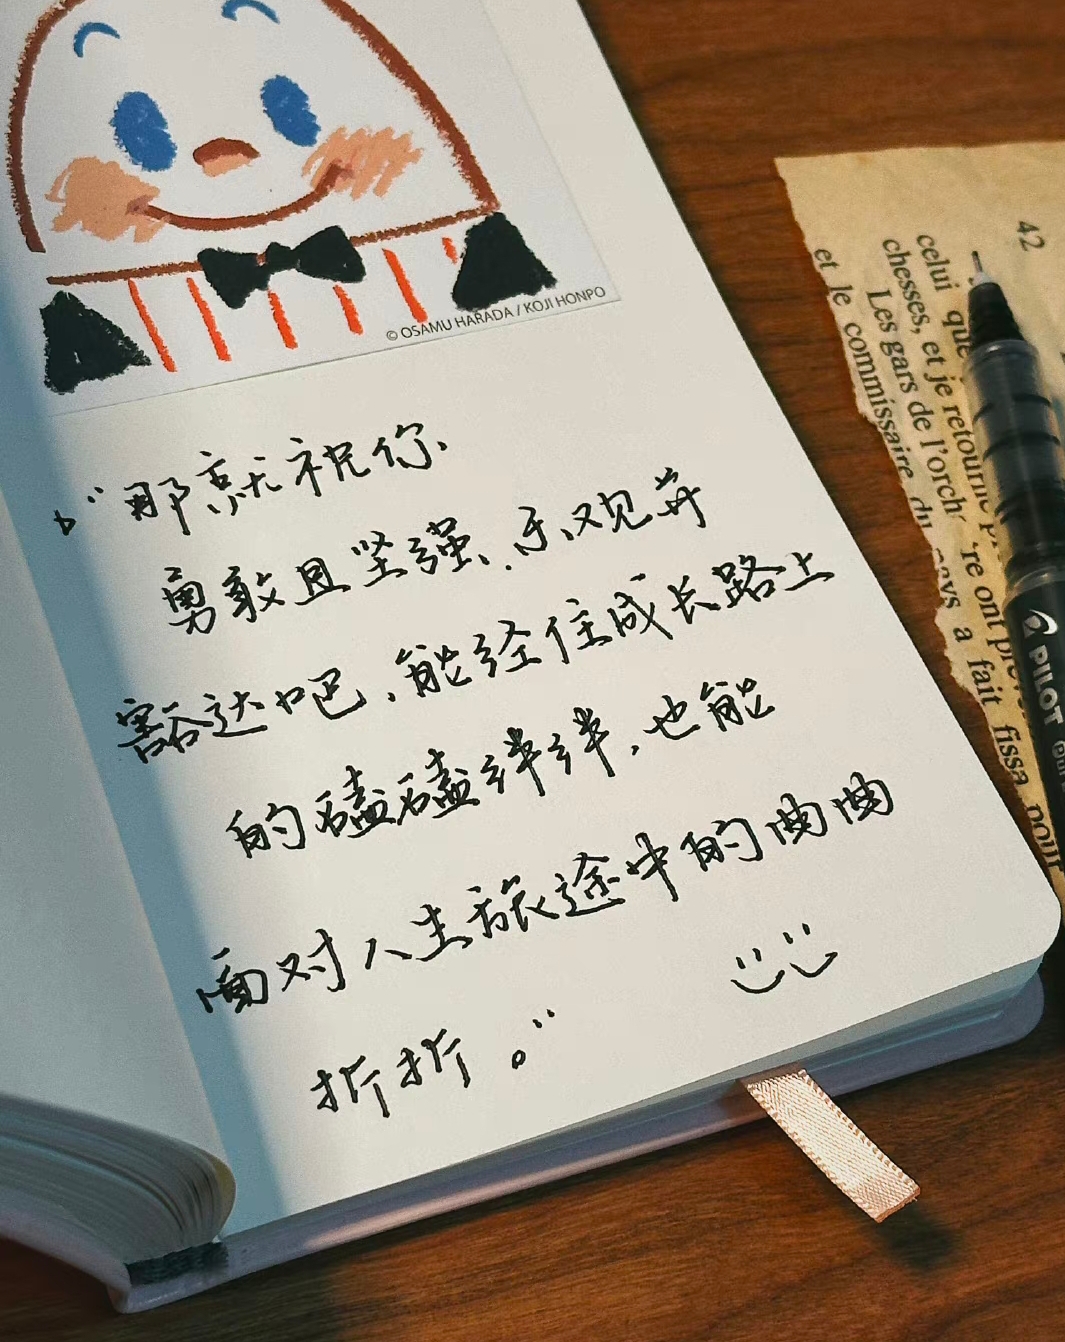 © OSAMU HARADA / KOJI HONPO
“那就祝你、
勇敢且坚强、乐观并
豁达吧,能经住成长路上
的磕磕绊绊,也能
面对人生旅途中的曲曲
折折。”
42
celui que
chesses, et je retourne
Les gars de l'orch
're ont
et le commissaire du pays a fait fissa pour
PILOT